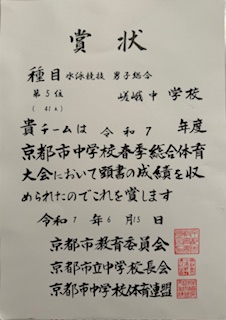 賞状
種目 水泳競技 男子総合
第5位 嵯峨中学校
貴チームは 令和7年度
京都市中学校春季総合体育
大会において頭書の成績を収
められたのでこれを賞します
令和7年6月15日
京都市教育委員会
京都市立中学校長会
京都市中学校体育連盟